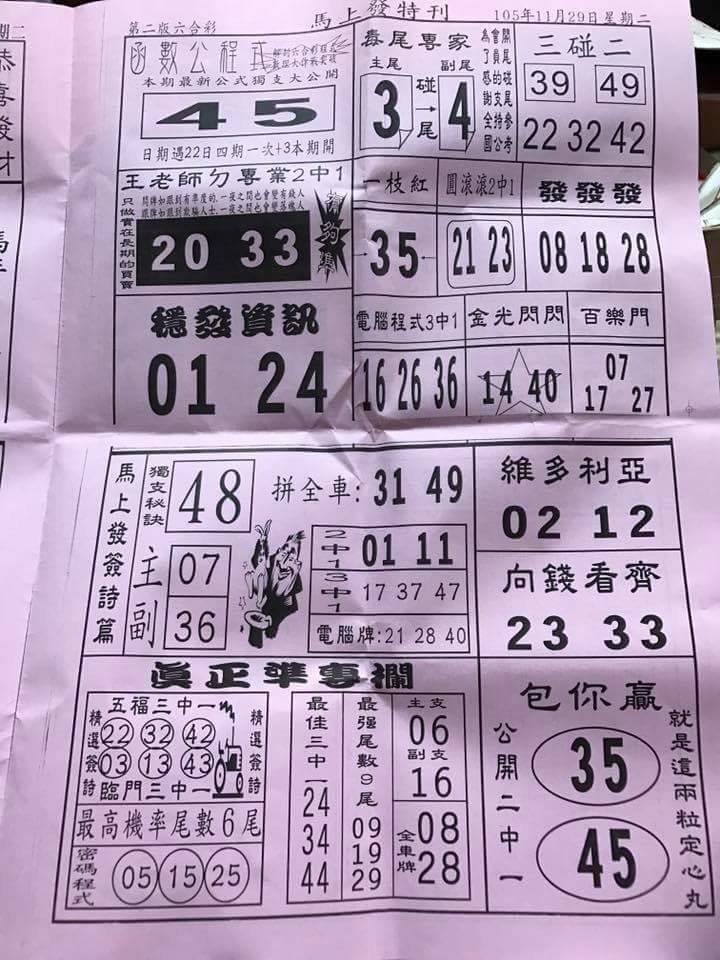 第二版六合彩
馬上發特刊
105年11月29日星期二
恭喜發財
函數公程式
本期最新公式獨支大公開
45
日期遇22日四期一次+3本期開
毒尾專家
主尾 副尾
3 碰尾→ 4
三碰二
39 49
22 32 42
王老師力專業2中1
只做實在長期的買賣
20 33
一枝紅
35
圓滾滾2中1
21 23
發發發
08 18 28
穩發資訊
01 24
電腦程式3中1
16 26 36
金光閃閃
14 40
百樂門
07
17 27
馬上發簽詩篇
獨支秘訣
48
主 07
副 36
拼全車:31 49
2中1 01 11
3中1 17 37 47
電腦牌:21 28 40
維多利亞
02 12
向錢看齊
23 33
真正準專欄
五福三中一
精選簽詩
22 32 42
03 13 43
精選簽詩
臨門三中一
最高機率尾數6尾
密碼程式
05 15 25
最佳三中一
24
34
44
最强尾數9尾
09
19
29
主支
06
副支
16
全車牌
08
28
包你贏
公開二中一
35
45
就是這兩粒定心丸